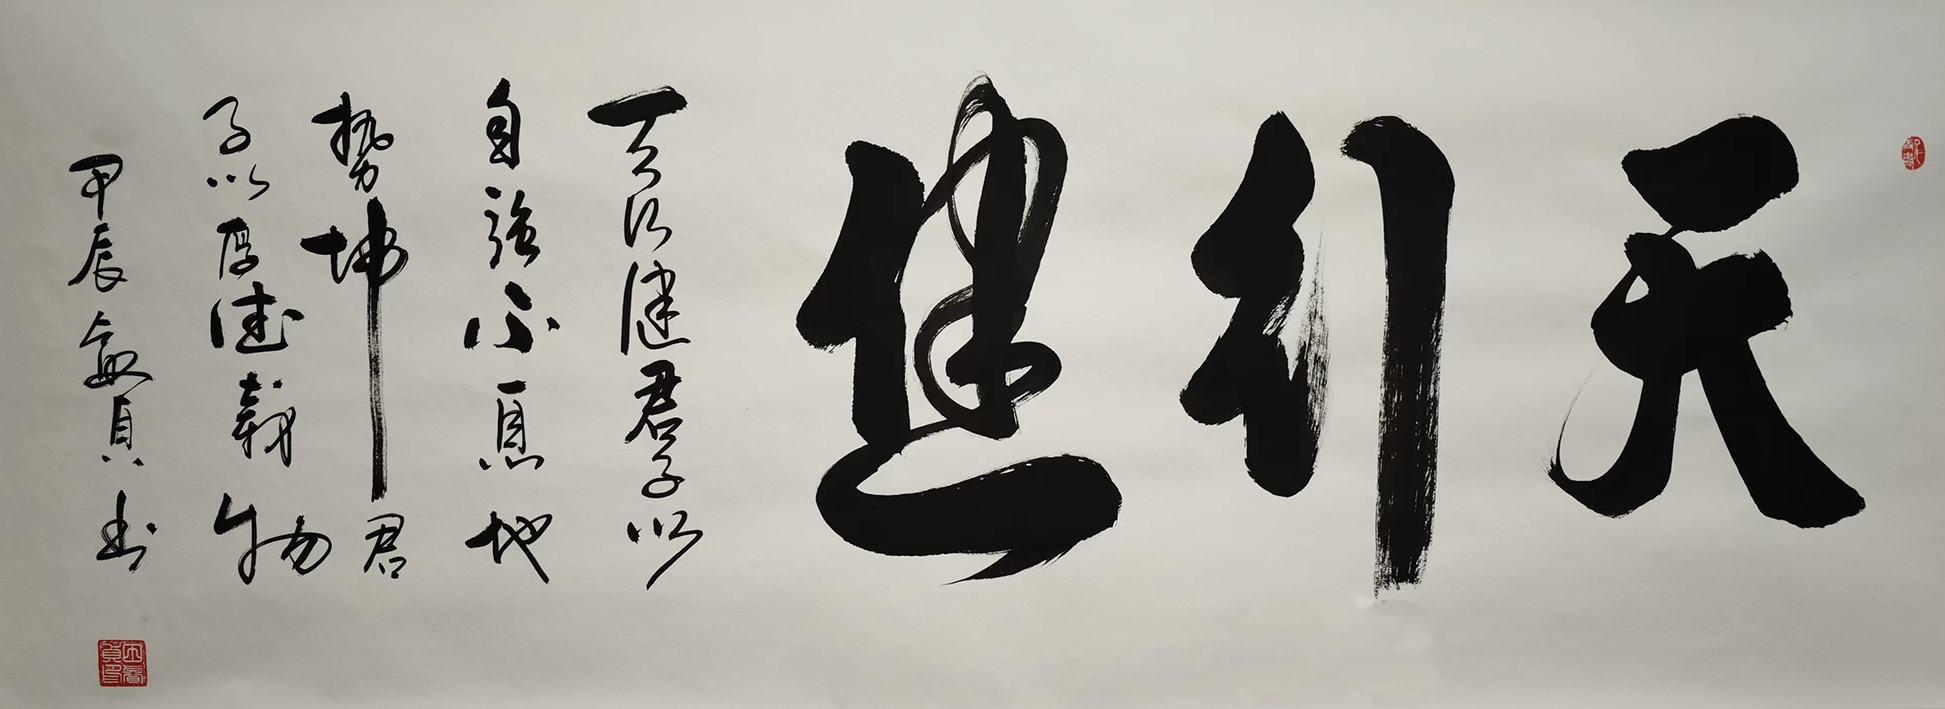 天行健
天行健君子以
自强不息地
势坤君
子以厚德载物
甲辰 贞书